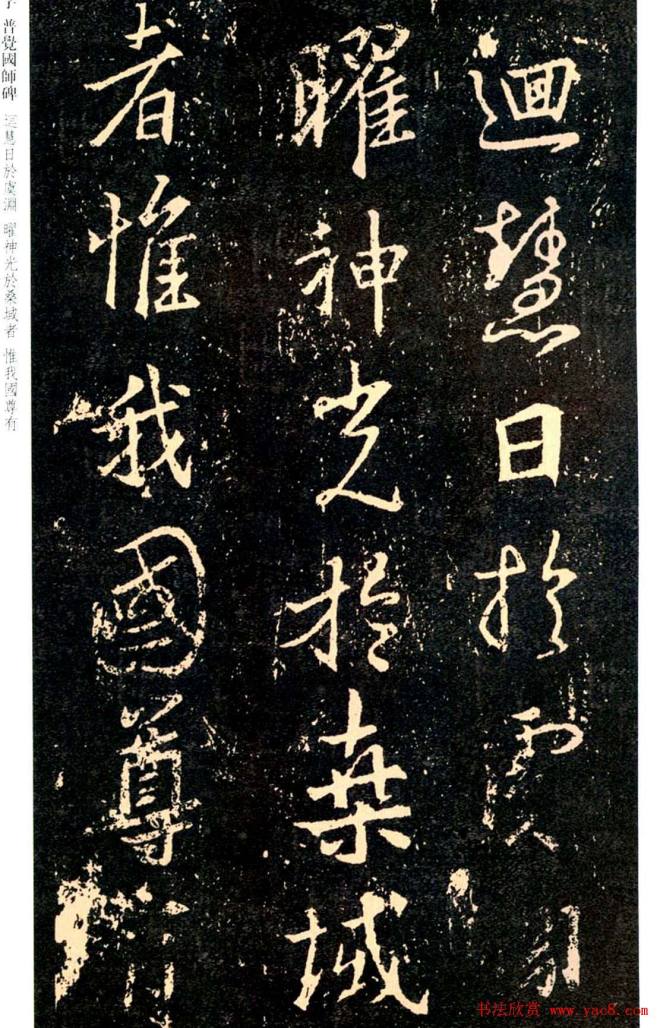 迴慧日於虞淵
曜神光於桒域
者惟我國尊有
普覺國師碑 迴慧日於虞淵 曜神光於桑域者 惟我國尊有
书法欣赏 www.yac8.com